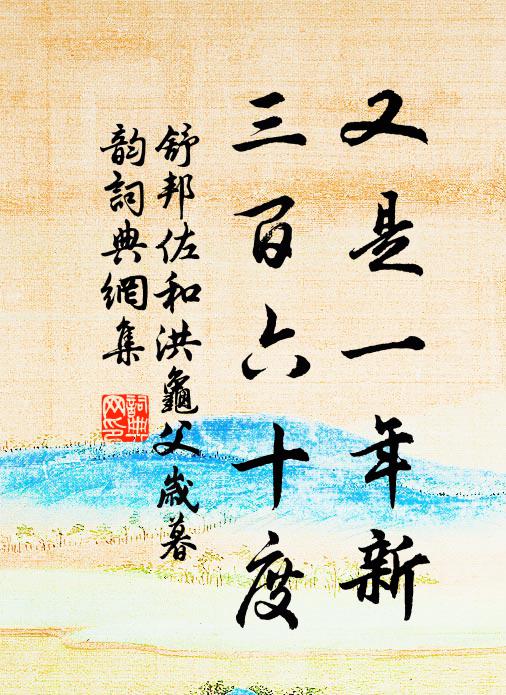 又是一年新
三百六十度
舒邦佐和洪龜父歲暮
韵詞典網集
詞典
网印